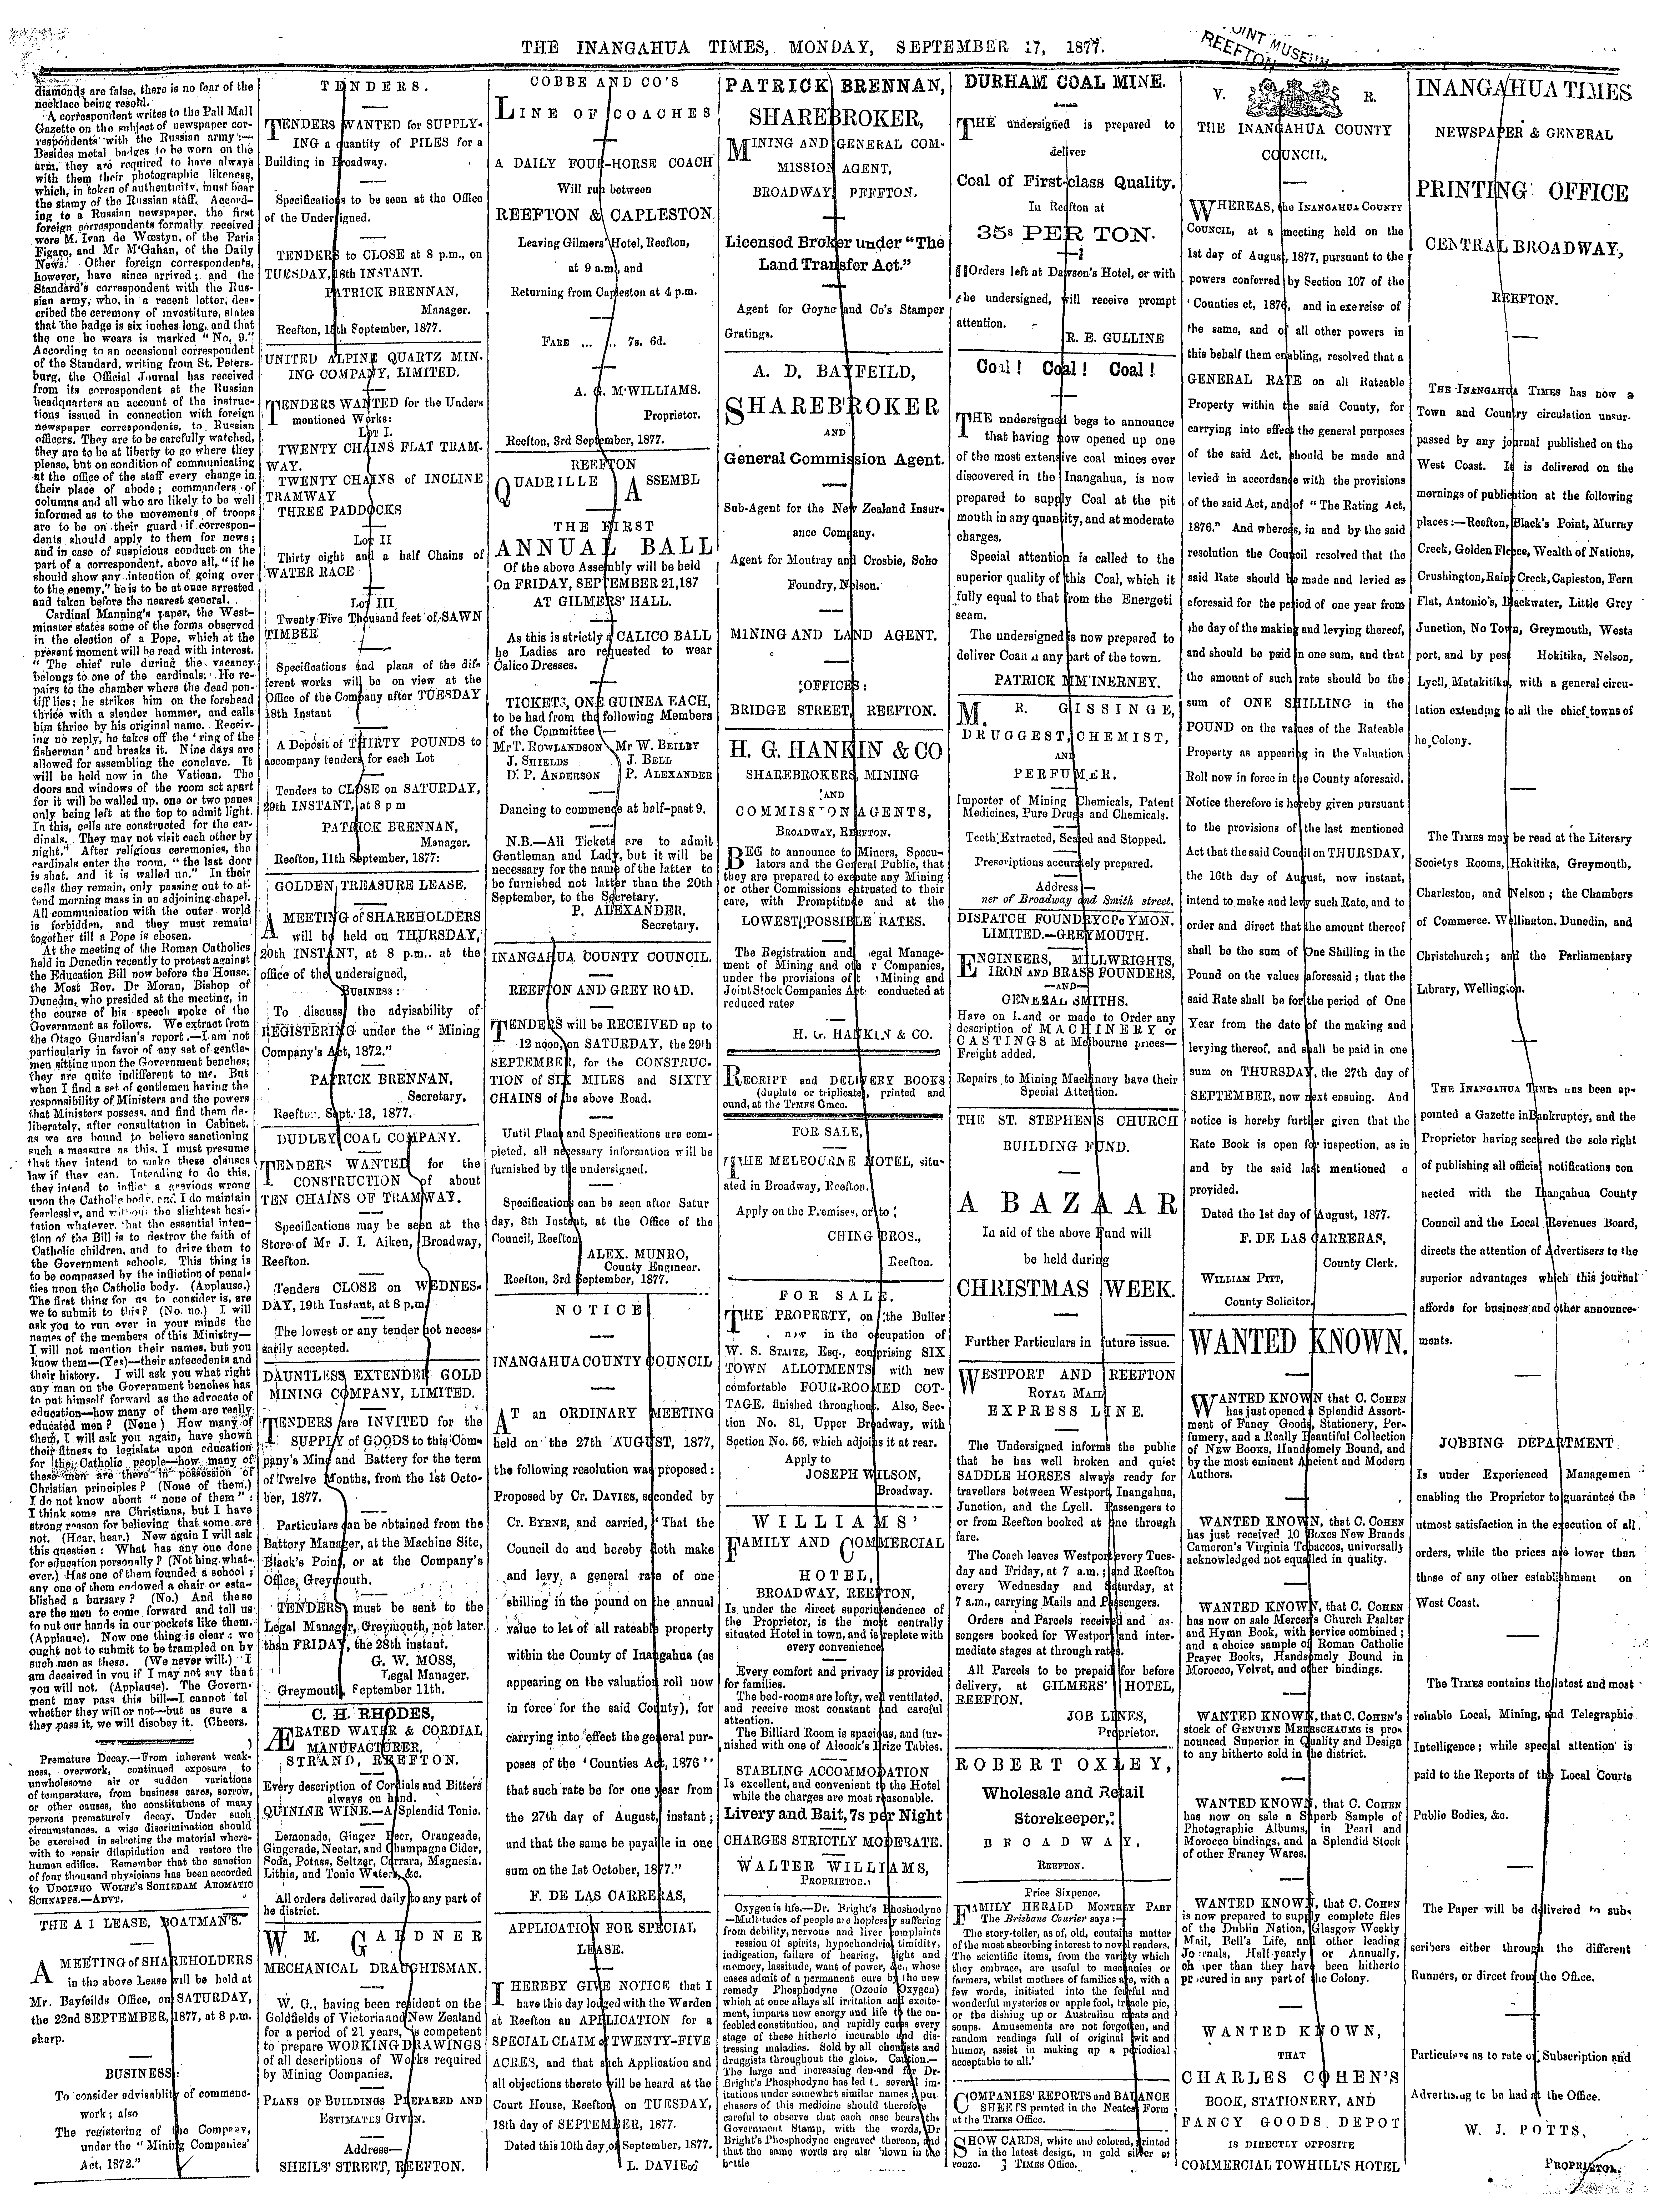 THE INANGAHUA TIMES, MONDAY, SEPTEMBER 17, 1877.
MUSEUM
REEFTON
diamonds are false, there is no fear of the
necklace being resold.
A correspondent writes to the Pall Mall
Gazette on the subject of newspaper cor-
respondents with the Russian army:—
Besides metal badges to be worn on the
arm, they are required to have always
with them their photographic likeness,
which, in token of authenticity, must bear
the stamy of the Russian staff. Accord-
ing to a Russian newspaper, the first
foreign correspondents formally received
were M. Ivan de Wœstyn, of the Paris
Figaro, and Mr M'Gahan, of the Daily
News. Other foreign correspondents,
however, have since arrived; and the
Standard's correspondent with the Rus-
sian army, who, in a recent letter, des-
cribed the ceremony of investiture, states
that the badge is six inches long, and that
the one he wears is marked "No. 9."
According to an occasional correspondent
of the Standard, writing from St. Peters-
burg, the Official Journal has received
from its correspondent at the Russian
headquarters an account of the instruc-
tions issued in connection with foreign
newspaper correspondents, to Russian
officers. They are to be carefully watched,
they are to be at liberty to go where they
please, but on condition of communicating
at the office of the staff every change in
their place of abode; commanders of
columns and all who are likely to be well
informed as to the movements of troops
are to be on their guard if correspon-
dents should apply to them for news;
and in case of suspicious conduct on the
part of a correspondent, above all, "if he
should show any intention of going over
to the enemy," he is to be at once arrested
and taken before the nearest general.
Cardinal Manning's paper, the West-
minster states some of the forms observed
in the election of a Pope, which at the
present moment will be read with interest.
"The chief rule during the vacancy
belongs to one of the cardinals. He re-
pairs to the chamber where the dead pon-
tiff lies; he strikes him on the forehead
thrice with a slender hammer, and calls
him thrice by his original name. Receiv-
ing no reply, he takes off the 'ring of the
fisherman' and breaks it. Nine days are
allowed for assembling the conclave. It
will be held now in the Vatican. The
doors and windows of the room set apart
for it will be walled up, one or two panes
only being left at the top to admit light.
In this, cells are constructed for the car-
dinals. They may not visit each other by
night." After religious ceremonies, the
cardinals enter the room, "the last door
is shut, and it is walled up." In their
cells they remain, only passing out to at-
tend morning mass in an adjoining chapel.
All communication with the outer world
is forbidden, and they must remain
together till a Pope is chosen.
At the meeting of the Roman Catholics
held in Dunedin recently to protest against
the Education Bill now before the House,
the Most Rev. Dr Moran, Bishop of
Dunedin, who presided at the meeting, in
the course of his speech spoke of the
Government as follows. We extract from
the Otago Guardian's report.—I am not
particularly in favor of any set of gentle-
men sitting upon the Government benches;
they are quite indifferent to me. But
when I find a set of gentlemen having the
responsibility of Ministers and the powers
that Ministers possess, and find them de-
liberately, after consultation in Cabinet,
as we are bound to believe sanctioning
such a measure as this, I must presume
that they intend to make these clauses
law if they can. Intending to do this,
they intend to inflict a grevious wrong
upon the Catholic body, and I do maintain
fearlessly, and without the slightest hesi-
tation whatever, that the essential inten-
tion of the Bill is to destroy the faith of
Catholic children, and to drive them to
the Government schools. This thing is
to be compassed by the infliction of penal-
ties upon the Catholic body. (Applause.)
The first thing for us to consider is, are
we to submit to this? (No. no.) I will
ask you to run over in your minds the
names of the members of this Ministry—
I will not mention their names, but you
know them—(Yes)—their antecedents and
their history. I will ask you what right
any man on the Government benches has
to put himself forward as the advocate of
education—how many of them are really
educated men? (None) How many of
them, I will ask you again, have shown
their fitness to legislate upon education
for the Catholic people—how many of
these men are there in possession of
Christian principles? (None of them.)
I do not know about "none of them":
I think some are Christians, but I have
strong reason for believing that some are
not. (Hear, hear.) Now again I will ask
this question: What has any one done
for education personally? (Nothing what-
ever.) Has one of them founded a school;
any one of them endowed a chair or esta-
blished a bursary? (No.) And these
are the men to come forward and tell us
to put our hands in our pockets like them.
(Applause). Now one thing is clear: we
ought not to submit to be trampled on by
such men as these. (We never will.) I
am deceived in you if I may not say that
you will not. (Applause). The Govern-
ment may pass this bill—I cannot tel
whether they will or not—but as sure a
they pass it, we will disobey it. (Cheers.
)
Premature Decay.—From inherent weak-
ness, overwork, continued exposure to
unwholesome air or sudden variations
of temperature, from business cares, sorrow,
or other causes, the constitutions of many
persons prematurely decay. Under such
circumstances, a wise discrimination should
be exercised in selecting the material where-
with to repair dilapidation and restore the
human edifice. Remember that the sanction
of four thousand physicians has been accorded
to UDOLPHO WOLFE'S SCHIEDAM AROMATIC
SCHNAPPS.—ADVT.
THE A 1 LEASE, BOATMAN'S.
A MEETING of SHAREHOLDERS
in ths above Lease will be held at
Mr. Bayfeilds Office, on SATURDAY,
the 22nd SEPTEMBER, 1877, at 8 p.m.
sharp.
BUSINESS:
To consider advisablity of commenc-
work; also
The registering of the Company,
under the "Mining Companies'
Act, 1872."
TENDERS.
TENDERS WANTED for SUPPLY-
ING a quantity of PILES for a
Building in Broadway.
Specifications to be seen at the Office
of the Undersigned.
TENDERS to CLOSE at 8 p.m., on
TUESDAY, 18th INSTANT.
PATRICK BRENNAN,
Manager.
Reefton, 15th September, 1877.
UNITED ALPINE QUARTZ MIN-
ING COMPANY, LIMITED.
TENDERS WANTED for the Under-
mentioned Works:
Lot I.
TWENTY CHAINS FLAT TRAM-
WAY.
TWENTY CHAINS of INCLINE
TRAMWAY
THREE PADDOCKS
Lot II
Thirty eight and a half Chains of
WATER RACE
Lot III
Twenty Five Thousand feet of SAWN
TIMBER
Specifications and plans of the dif-
ferent works will be on view at the
Office of the Company after TUESDAY
18th Instant
A Deposit of THIRTY POUNDS to
accompany tenders for each Lot
Tenders to CLOSE on SATURDAY,
29th INSTANT, at 8 p m
PATRICK BRENNAN,
Manager.
Reefton, 11th September, 1877:
GOLDEN TREASURE LEASE.
A MEETING of SHAREHOLDERS
will be held on THURSDAY,
20th INSTANT, at 8 p.m.. at the
office of the undersigned,
BUSINESS:
To discuss the adyisability of
REGISTERING under the "Mining
Company's Act, 1872."
PATRICK BRENNAN,
Secretary.
Reefton, Sept. 13, 1877.
DUDLEY COAL COMPANY.
TENDERS WANTED for the
CONSTRUCTION of about
TEN CHAINS OF TRAMWAY.
Specifications may be seen at the
Store of Mr J. I. Aiken, Broadway,
Reefton.
Tenders CLOSE on WEDNES-
DAY, 19th Instant, at 8 p.m.
The lowest or any tender not neces-
sarily accepted.
DAUNTLESS EXTENDED GOLD
MINING COMPANY, LIMITED.
TENDERS are INVITED for the
SUPPLY of GOODS to this Com-
pany's Mine and Battery for the term
of Twelve Months, from the 1st Octo-
ber, 1877.
Particulars can be obtained from the
Battery Manager, at the Machine Site,
Black's Point, or at the Company's
Office, Greymouth.
TENDERS must be sent to the
Legal Manager, Greymouth, not later
than FRIDAY, the 28th instant.
G. W. MOSS,
Legal Manager.
Greymouth, September 11th.
C. H. RHODES,
ÆRATED WATER & CORDIAL
MANUFACTURER,
STRAND, REEFTON.
Every description of Cordials and Bitters
always on hand.
QUININE WINE.—A Splendid Tonic.
Lemonade, Ginger Beer, Orangeade,
Gingerade, Nectar, and Champagne Cider,
Soda, Potass, Seltzer, Carrara, Magnesia.
Lithia, and Tonic Waters, &c.
All orders delivered daily to any part of
he district.
WM. GARDNER
MECHANICAL DRAUGHTSMAN.
W. G., having been resident on the
Goldfields of Victoria and New Zealand
for a period of 21 years, is competent
to prepare WORKING DRAWINGS
of all descriptions of Works required
by Mining Companies.
PLANS OF BUILDINGS PREPARED AND
ESTIMATES GIVEN.
Address—
SHEILS' STREET, REEFTON.
COBBE AND CO'S
LINE OF COACHES
A DAILY FOUR-HORSE COACH
Will run between
REEFTON & CAPLESTON,
Leaving Gilmers' Hotel, Reefton,
at 9 a.m., and
Returning from Capleston at 4 p.m.
FARE ... ... 7s. 6d.
A. G. M'WILLIAMS.
Proprietor.
Reefton, 3rd September, 1877.
REEFTON
QUADRILLE ASSEMBL
THE FIRST
ANNUAL BALL
Of the above Assembly will be held
On FRIDAY, SEPTEMBER 21, 187
AT GILMERS' HALL.
As this is strictly a CALICO BALL
he Ladies are requested to wear
Calico Dresses.
TICKETS, ONE GUINEA EACH,
to be had from the following Members
of the Committee—
Mr T. ROWLANDSON Mr W. BEILBY
J. SHIELDS J. BELL
D. P. ANDERSON P. ALEXANDER
Dancing to commence at half-past 9.
N.B.—All Tickets are to admit
Gentleman and Lady, but it will be
necessary for the name of the latter to
be furnished not latter than the 20th
September, to the Secretary.
P. ALEXANDER.
Secretary.
INANGAHUA COUNTY COUNCIL.
REEFTON AND GREY ROAD.
TENDERS will be RECEIVED up to
12 noon, on SATURDAY, the 29th
SEPTEMBER, for the CONSTRUC-
TION of SIX MILES and SIXTY
CHAINS of the above Road.
Until Plans and Specifications are com-
pieted, all necessary information will be
furnished by the undersigned.
Specifications can be seen after Satur
day, 8th Instant, at the Office of the
Council, Reefton
ALEX. MUNRO,
County Engineer.
Reefton, 3rd September, 1877.
NOTICE
INANGAHUA COUNTY COUNCIL
AT an ORDINARY MEETING
held on the 27th AUGUST, 1877,
the following resolution was proposed:
Proposed by Cr. DAVIES, seconded by
Cr. BYRNE, and carried, "That the
Council do and hereby doth make
and levy a general rate of one
shilling in the pound on the annual
value to let of all rateable property
within the County of Inangahua (as
appearing on the valuation roll now
in force for the said County), for
carrying into effect the general pur-
poses of the 'Counties Act, 1876''
that such rate be for one year from
the 27th day of August, instant;
and that the same be payable in one
sum on the 1st October, 1877."
F. DE LAS CARRERAS,
APPLICATION FOR SPECIAL
LEASE.
I HEREBY GIVE NOTICE that I
have this day lodged with the Warden
at Reefton an APPLICATION for a
SPECIAL CLAIM of TWENTY-FIVE
ACRES, and that such Application and
all objections thereto will be heard at the
Court House, Reefton on TUESDAY,
18th day of SEPTEMBER, 1877.
Dated this 10th day of September, 1877.
L. DAVIES
PATRICK BRENNAN,
SHAREBROKER,
MINING AND GENERAL COM-
MISSION AGENT,
BROADWAY REEFTON.
Licensed Broker under "The
Land Transfer Act."
Agent for Goyne and Co's Stamper
Gratings.
A. D. BAYFEILD,
SHAREBROKER
AND
General Commission Agent.
Sub-Agent for the New Zealand Insur-
ance Company.
Agent for Moutray and Crosbie, Soho
Foundry, Nelson.
MINING AND LAND AGENT.
OFFICES:
BRIDGE STREET, REEFTON.
H. G. HANKIN & CO
SHAREBROKERS, MINING
AND
COMMISSION AGENTS,
BROADWAY, REEFTON.
BEG to announce to Miners, Specu-
lators and the General Public, that
they are prepared to execute any Mining
or other Commissions entrusted to their
care, with Promptitude and at the
LOWEST POSSIBLE RATES.
The Registration and egal Manage-
ment of Mining and oth r Companies,
under the provisions of t Mining and
Joint Stock Companies Act conducted at
reduced rates
H. G. HANKIN & CO.
RECEIPT and DELIVERY BOOKS
(duplate or triplicate), printed and
ound, at the TIMES Office.
FOR SALE,
THE MELBOURNE HOTEL, situ-
ated in Broadway, Reefton.
Apply on the Premises, or to
CHING BROS.,
Reefton.
FOR SALE,
THE PROPERTY, on the Buller
now in the occupation of
W. S. STAITE, Esq., comprising SIX
TOWN ALLOTMENTS with new
comfortable FOUR-ROOMED COT-
TAGE. finished throughout. Also, Sec-
tion No. 81, Upper Broadway, with
Section No. 56, which adjoins it at rear.
Apply to
JOSEPH WILSON,
Broadway.
WILLIAMS'
FAMILY AND COMMERCIAL
HOTEL,
BROADWAY, REEFTON,
Is under the direct superintendence of
the Proprietor, is the most centrally
situated Hotel in town, and is replete with
every convenience
Every comfort and privacy is provided
for families.
The bed-rooms are lofty, well ventilated,
and receive most constant and careful
attention.
The Billiard Room is spacious, and fur-
nished with one of Alcock's Prize Tables.
STABLING ACCOMMODATION
Is excellent, and convenient to the Hotel
while the charges are most reasonable.
Livery and Bait, 7s per Night
CHARGES STRICTLY MODERATE.
WALTER WILLIAMS,
PROPRIETOR.
Oxygen is life.—Dr. Bright's Phoshodyne
—Multitudes of people are hoplessly suffering
from debility, nervous and liver complaints
ression of spirits, hypochondria, timidity,
indigestion, failure of hearing, sight and
memory, lassitude, want of power, &c., whose
cases admit of a permanent cure by the new
remedy Phosphodyne (Ozonic Oxygen)
which at once allays all irritation and excite-
ment, imparts new energy and life to the en-
feebled constitution, and rapidly cures every
stage of these hitherto incurable and dis-
tressing maladies. Sold by all chemists and
druggists throughout the globe. Caution.—
The large and increasing demand for Dr-
Bright's Phosphodyne has led t. several im-
itations under somewhst similar names; pur
chasers of this medicine should therefore
careful to observe that each case bears the
Government Stamp, with the words, Dr
Bright's Phosphodyne engraved thereon, and
that the same words are also blown in the
bottle
DURHAM COAL MINE.
THE undersigned is prepared to
deliver
Coal of First-class Quality.
In Reefton at
35s PER TON.
Orders left at Dawson's Hotel, or with
the undersigned, will receive prompt
attention.
R. E. GULLINE
Coal! Coal! Coal!
THE undersigned begs to announce
that having now opened up one
of the most extensive coal mines ever
discovered in the Inangahua, is now
prepared to supply Coal at the pit
mouth in any quantity, and at moderate
charges.
Special attention is called to the
superior quality of this Coal, which it
fully equal to that from the Energeti
seam.
The undersigned is now prepared to
deliver Coal in any part of the town.
PATRICK M'INERNEY.
M. R. GISSINGE,
DRUGGEST, CHEMIST,
AND
PERFUMER.
Importer of Mining Chemicals, Patent
Medicines, Pure Drugs and Chemicals.
Teeth Extracted, Scaled and Stopped.
Prescriptions accurately prepared.
Address—
ner of Broadway and Smith street.
DISPATCH FOUNDRY COMPANY
LIMITED.—GREYMOUTH.
ENGINEERS, MILLWRIGHTS,
IRON AND BRASS FOUNDERS,
—AND—
GENERAL SMITHS.
Have on hand or made to Order any
description of MACHINERY or
CASTINGS at Melbourne prices—
Freight added.
Repairs to Mining Machinery have their
Special Attention.
THE ST. STEPHENS CHURCH
BUILDING FUND.
A BAZAAR
In aid of the above Fund will
be held during
CHRISTMAS WEEK.
Further Particulars in future issue.
WESTPORT AND REEFTON
ROYAL MAIL
EXPRESS LINE.
The Undersigned informs the public
that he has well broken and quiet
SADDLE HORSES always ready for
travellers between Westport, Inangahua,
Junction, and the Lyell. Passengers to
or from Reefton booked at one through
fare.
The Coach leaves Westport every Tues-
day and Friday, at 7 a.m.; and Reefton
every Wednesday and Saturday, at
7 a.m., carrying Mails and Passengers.
Orders and Parcels received and as-
sengers booked for Westport and inter-
mediate stages at through rates.
All Parcels to be prepaid for before
delivery, at GILMERS' HOTEL,
REEFTON.
JOB LINES,
Proprietor.
ROBERT OXLEY,
Wholesale and Retail
Storekeeper,
BROADWAY,
REEFTON.
Price Sixpence.
FAMILY HERALD MONTHLY PART
The Brisbane Courier says:—
The story-teller, as of, old, contains matter
of the most absorbing interest to novel readers.
The scientific items, from the variety which
they embrace, are useful to mechanics or
farmers, whilst mothers of families are, with a
few words, initiated into the fearful and
wonderful mysteries or apple fool, treacle pie,
or the dishing up or Australian meats and
soups. Amusements are not forgotten, and
random readings full of original wit and
humor, assist in making up a periodical
acceptable to all.'
COMPANIES' REPORTS and BALANCE
SHEETS printed in the Neatest Form
at the TIMES Office.
SHOW CARDS, white and colored, printed
in the latest design, in gold silver or
ronzo. TIMES Office.
V. R.
THE INANGAHUA COUNTY
COUNCIL.
WHEREAS, the INANGAHUA COUNTY
COUNCIL, at a meeting held on the
1st day of August, 1877, pursuant to the
powers conferred by Section 107 of the
'Counties ct, 1876, and in exercise of
the same, and of all other powers in
this behalf them enabling, resolved that a
GENERAL RATE on all Rateable
Property within the said County, for
carrying into effect the general purposes
of the said Act, should be made and
levied in accordance with the provisions
of the said Act, and of "The Rating Act,
1876." And whereas, in and by the said
resolution the Council resolved that the
said Rate should be made and levied as
aforesaid for the period of one year from
the day of the making and levying thereof,
and should be paid in one sum, and that
the amount of such rate should be the
sum of ONE SHILLING in the
POUND on the values of the Rateable
Property as appearing in the Valuation
Roll now in force in the County aforesaid.
Notice therefore is hereby given pursuant
to the provisions of the last mentioned
Act that the said Council on THURSDAY,
the 16th day of August, now instant,
intend to make and levy such Rate, and to
order and direct that the amount thereof
shall be the sum of One Shilling in the
Pound on the values aforesaid; that the
said Rate shall be for the period of One
Year from the date of the making and
levying thereof, and shall be paid in one
sum on THURSDAY, the 27th day of
SEPTEMBER, now next ensuing. And
notice is hereby further given that the
Rate Book is open for inspection, as in
and by the said last mentioned c
provided.
Dated the 1st day of August, 1877.
F. DE LAS CARRERAS,
County Clerk.
WILLIAM PITT,
County Solicitor.
WANTED KNOWN.
WANTED KNOWN that C. COHEN
has just opened a Splendid Assort-
ment of Fancy Goods, Stationery, Per-
fumery, and a Really Beautiful Collection
of New Books, Handsomely Bound, and
by the most eminent Ancient and Modern
Authors.
WANTED KNOWN, that C. COHEN
has just received 10 Boxes New Brands
Cameron's Virginia Tobaccos, universally
acknowledged not equalled in quality.
WANTED KNOWN, that C. COHEN
has now on sale Mercer's Church Psalter
and Hymn Book, with service combined;
and a choice sample of Roman Catholic
Prayer Books, Handsomely Bound in
Morocco, Velvet, and other bindings.
WANTED KNOWN, that C. COHEN'S
stock of GENUINE MEERSCHAUMS is pro-
nounced Superior in Quality and Design
to any hitherto sold in the district.
WANTED KNOWN, that C. COHEN
has now on sale a Superb Sample of
Photographic Albums, in Pearl and
Morocco bindings, and a Splendid Stock
of other Francy Wares.
WANTED KNOWN, that C. COHEN
is now prepared to supply complete files
of the Dublin Nation, Glasgow Weekly
Mail, Bell's Life, and other leading
Jo rnals, Half-yearly or Annually,
ch per than they have been hitherto
pr cured in any part of the Colony.
WANTED KNOWN,
THAT
CHARLES COHEN'S
BOOK, STATIONERY, AND
FANCY GOODS DEPOT
IS DIRECTLY OPPOSITE
COMMERCIAL TOWHILL'S HOTEL
INANGAHUA TIMES
NEWSPAPER & GENERAL
PRINTING OFFICE
CENTRAL BROADWAY,
REEFTON.
THE INANGAHUA TIMES has now a
Town and Country circulation unsur-
passed by any journal published on the
West Coast. It is delivered on the
mornings of publication at the following
places:—Reefton, Black's Point, Murray
Creek, Golden Fleece, Wealth of Nations,
Crushington, Rainy Creek, Capleston, Fern
Flat, Antonio's, Blackwater, Little Grey
Junction, No Town, Greymouth, Wests
port, and by post Hokitika, Nelson,
Lyell, Matakitika, with a general circu-
lation extending to all the chief towns of
he Colony.
The TIMES may be read at the Literary
Societys Rooms, Hokitika, Greymouth,
Charleston, and Nelson; the Chambers
of Commerce. Wellington. Dunedin, and
Christchurch; and the Parliamentary
Library, Wellington.
THE INANGAHUA TIMES has been ap-
pointed a Gazette in Bankruptcy, and the
Proprietor having secured the sole right
of publishing all official notifications con
nected with the Inangahua County
Council and the Local Revenues Board,
directs the attention of Advertisers to the
superior advantages which this journal
affords for business and other announce-
ments.
JOBBING DEPARTMENT
Is under Experienced Managemen
enabling the Proprietor to guarantee the
utmost satisfaction in the execution of all
orders, while the prices are lower than
those of any other establishment on
West Coast.
The TIMES contains the latest and most
reliable Local, Mining, and Telegraphic
Intelligence; while special attention is
paid to the Reports of the Local Courts
Public Bodies, &c.
The Paper will be delivered to subs
scribers either through the different
Runners, or direct from the Office.
Particulars as to rate of Subscription and
Advertising to be had at the Office.
W. J. POTTS,
PROPRIETOR.